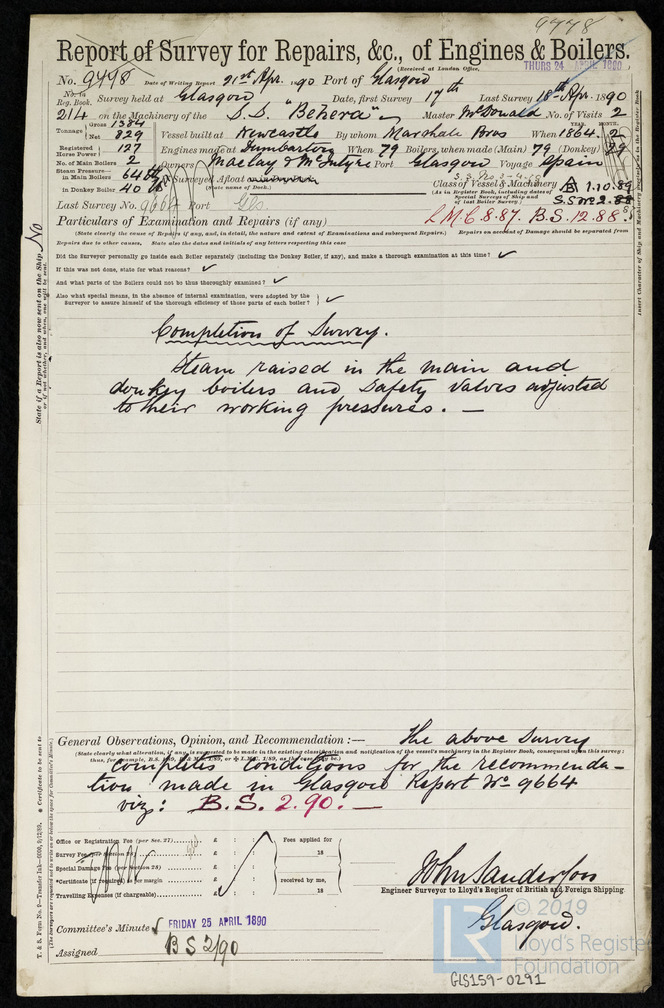 9498
Report of Survey for Repairs, &c., of Engines & Boilers.
(Received at London Office, THURS 24 APRIL 1890
No. 9498 Date of Writing Report 21st Apr. 1890 Port of Glasgow
No. in Reg. Book. Survey held at Glasgow Date, first Survey 17th Last Survey 18th Apr. 1890
214 on the Machinery of the S.S. "Behera" Master McDonald No. of Visits 2
Tonnage Gross 1384 Net 829 Vessel built at Newcastle By whom Marshall Bros When 1864. 2
YEAR. MONTH.
Registered Horse Power 127 Engines made at Dumbarton When 79 Boilers, when made (Main) 79 (Donkey) 79
No. of Main Boilers 2 Owners Maclay & McIntyre Port Glasgow Voyage Spain
Steam Pressure in Main Boilers 64 lb If Surveyed Afloat or in Dry Dock
(State name of Dock.)
in Donkey Boiler 40 lb
Class of Vessel & Machinery A 1.10.89
(As in Register Book, including dates of Special Surveys of Ship and of last Boiler Survey.)
S.S. No 2.88
Last Survey No. 9664 Port Gls.
L.M.C. 8.87. B.S. 12.88
Particulars of Examination and Repairs (if any)
(State clearly the cause of Repairs if any, and, in detail, the nature and extent of Examinations and subsequent Repairs.) Repairs on account of Damage should be separated from
Repairs due to other causes, State also the dates and initials of any letters respecting this case
Did the Surveyor personally go inside each Boiler separately (including the Donkey Boiler, if any), and make a thorough examination at this time? ✓
If this was not done, state for what reasons? ✓
And what parts of the Boilers could not be thus thoroughly examined? ✓
Also what special means, in the absence of internal examination, were adopted by the
Surveyor to assure himself of the thorough efficiency of those parts of each boiler? ✓
Completion of Survey.
Steam raised in the main and
donkey boilers and safety valves adjusted
to their working pressures. —
General Observations, Opinion, and Recommendation :— The above survey
(State clearly what alteration, if any, is suggested to be made in the existing classification and notification of the vessel's machinery in the Register Book, consequent upon this survey;
completes conditions for the recommenda-
tion made in Glasgow Report No 9664
viz: B.S. 2.90. —
Office or Registration Fee (per Sec. 27) £ : : Fees applied for
Survey Fee (per Section £ : : 18
Special Damage Fee (per Section 28) £ : :
*Certificate (if required) as per margin £ : : received by me,
Travelling Expenses (if chargeable) £ : : 18
John Sanderson
Engineer Surveyor to Lloyd's Register of British and Foreign Shipping.
Glasgow.
Committee's Minute FRIDAY 25 APRIL 1890
Assigned B S 2/90
State if a Report is also now sent on the Ship No
or if not whether, and when, one will be sent.
Insert Character of Ship and Machinery precisely as in the Register Book
* Certificate to be sent to
LR © 2019
Lloyd's Register
Foundation
GLS159-0291